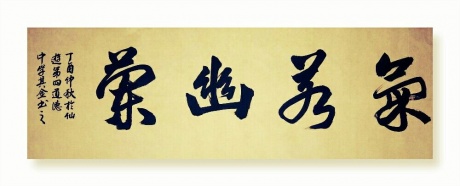 氣若幽蘭
丁酉仲秋於仙
遊第四道德
中學其金書之